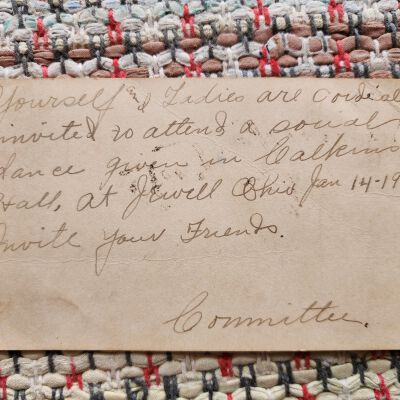 Yourself & Ladies are Cordial
invited to attend a social
dance given in Calkins
Hall, at Jewell Ohio Jan 14-19
Invite Your Friends.
Committee.